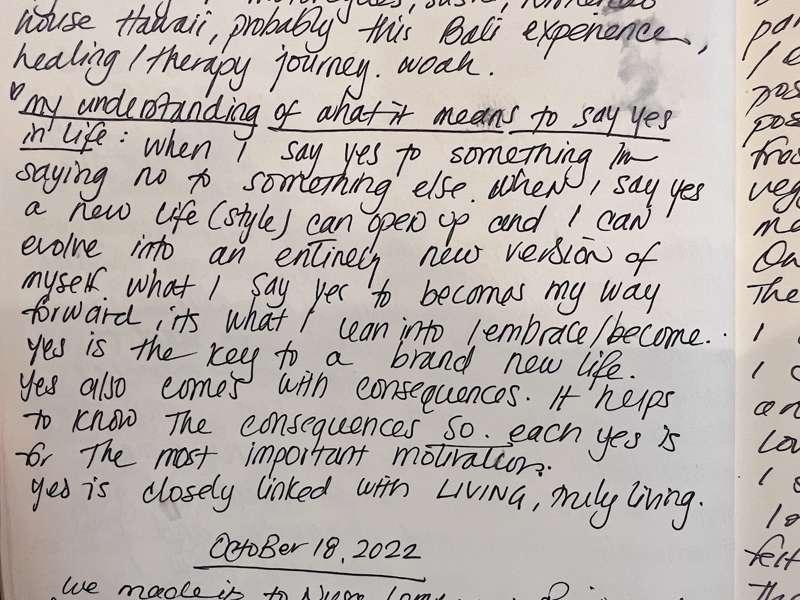 house Hawaii, probably this Bali experience,
healing / therapy journey. woah.
my understanding of what it means to say yes
in life: when I say yes to something Im
saying no to something else. when I say yes
a new life (style) can open up and I can
evolve into an entirely new version of
myself. what I say yes to becomes my way
forward, its what I lean into / embrace / become..
yes is the key to a brand new life.
yes also comes with consequences. It helps
to know the consequences so. each yes is
for the most important motivation.
yes is closely linked with LIVING, truly living.
OCTOBER 18, 2022
we made it to